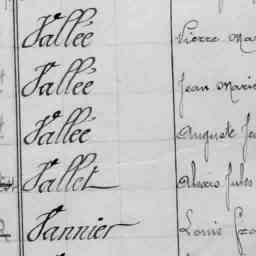 Vallée Pierre Mar
Vallée Jean Marie
Vallée Auguste Je
Vallet Alexis Jules
Vannier Louis Fra